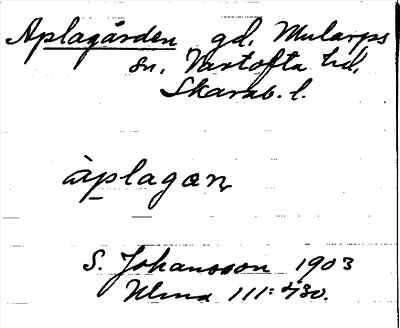 Aplagården gd. Mularps
sn. Vartofta hd.
Skarab. l.
àplagan
S. Johansson 1903
111:430.